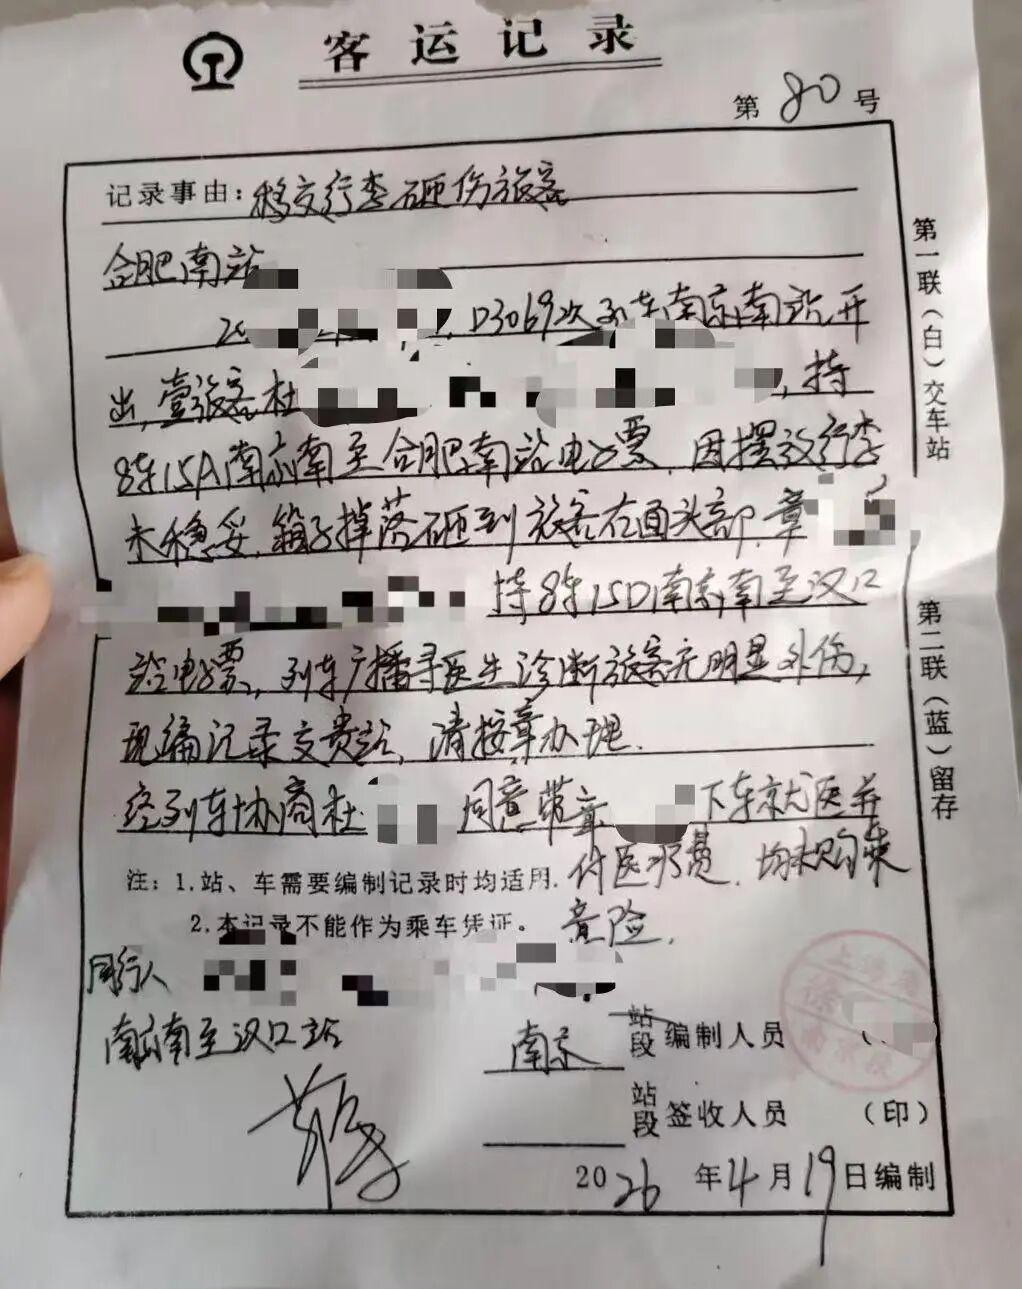 客运记录
第 80 号
记录事由：移交行李砸伤旅客
合肥南站
20 , D3069次列车南京南站开
出，壹旅客杜 ，持
8车15A南京南至合肥南站电子票，因摆放行李
未稳妥，箱子掉落砸到旅客右面头部，章
持8车15D南京南至汉口
站电子票，列车广播寻医生诊断旅客无明显外伤，
现编记录交贵站，请按章办理．
经列车协商杜 同意带章 下车就医并
付医疗费．均未购乘
意险．
注：1.站、车需要编制记录时均适用．
2.本记录不能作为乘车凭证。
同行人
南京南至汉口站
南京 站段 编制人员
站段 签收人员 （印）
2026 年 4 月 19 日编制
第一联（白）交车站
第二联（蓝）留存
上海局
南京段